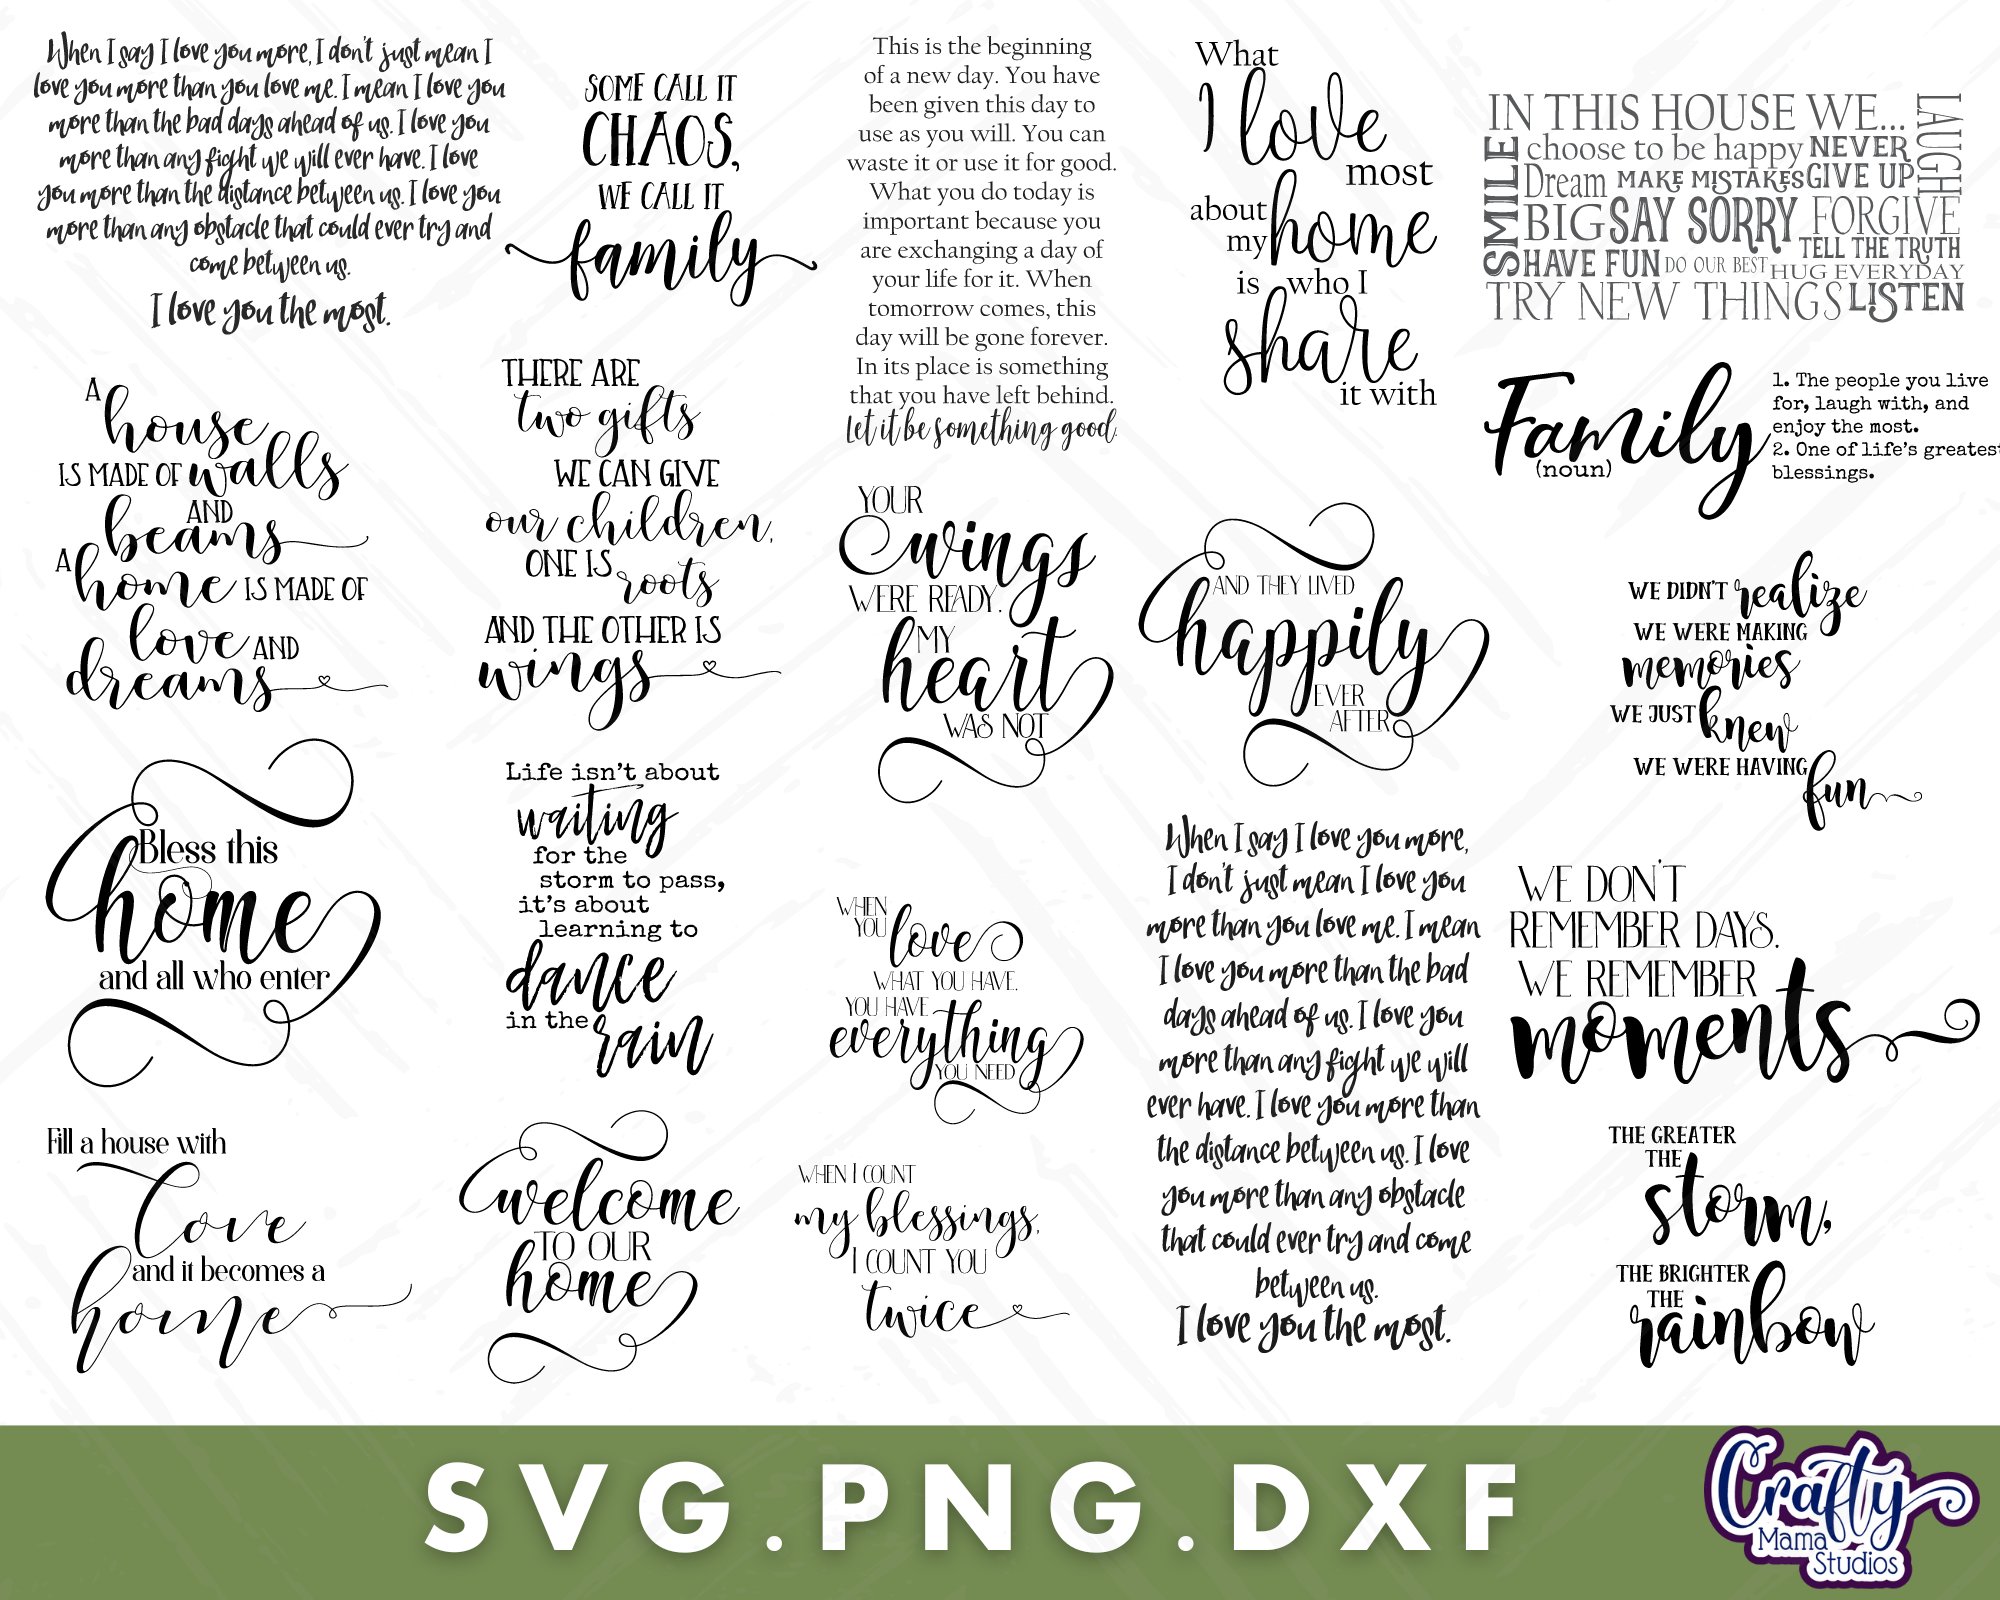 When I say I love you more, I don't just mean I
love you more than you love me. I mean I love you
more than the bad days ahead of us. I love you
more than any fight we will ever have. I love
you more than the distance between us. I love you
more than any obstacle that could ever try and
come between us.
I love you the most.
SOME CALL IT
CHAOS,
WE CALL IT
family
This is the beginning
of a new day. You have
been given this day to
use as you will. You can
waste it or use it for good.
What you do today is
important because you
are exchanging a day of
your life for it. When
tomorrow comes, this
day will be gone forever.
In its place is something
that you have left behind.
Let it be something good.
What
I love
most
about
my home
is who I
share
it with
IN THIS HOUSE WE...
LAUGH
SMILE
choose to be happy NEVER
Dream MAKE MISTAKES GIVE UP
BIG SAY SORRY FORGIVE
TELL THE TRUTH
HAVE FUN DO OUR BEST HUG EVERYDAY
TRY NEW THINGS LISTEN
A
house
IS MADE OF walls
AND
beams
A home IS MADE OF
love AND
dreams
THERE ARE
two gifts
WE CAN GIVE
our children,
ONE IS roots
AND THE OTHER IS
wings
YOUR
wings
WERE READY.
MY
heart
WAS NOT
AND THEY LIVED
happily
EVER
AFTER
Family
(noun)
1. The people you live
for, laugh with, and
enjoy the most.
2. One of life's greatest
blessings.
WE DIDN'T realize
WE WERE MAKING
memories
WE JUST knew
WE WERE HAVING
fun
Bless this
home
and all who enter
Life isn't about
waiting
for the
storm to pass,
it's about
learning to
dance
in the rain
WHEN
YOU love
WHAT YOU HAVE,
YOU HAVE
everything
YOU NEED
When I say I love you more,
I don't just mean I love you
more than you love me. I mean
I love you more than the bad
days ahead of us. I love you
more than any fight we will
ever have. I love you more than
the distance between us. I love
you more than any obstacle
that could ever try and come
between us.
I love you the most.
WE DON'T
REMEMBER DAYS.
WE REMEMBER
moments
Fill a house with
Love
and it becomes a
home
welcome
TO OUR
home
WHEN I COUNT
my blessings,
I COUNT YOU
twice
THE GREATER
THE
storm,
THE BRIGHTER
THE
rainbow
SVG.PNG.DXF
Crafty
Mama
Studios